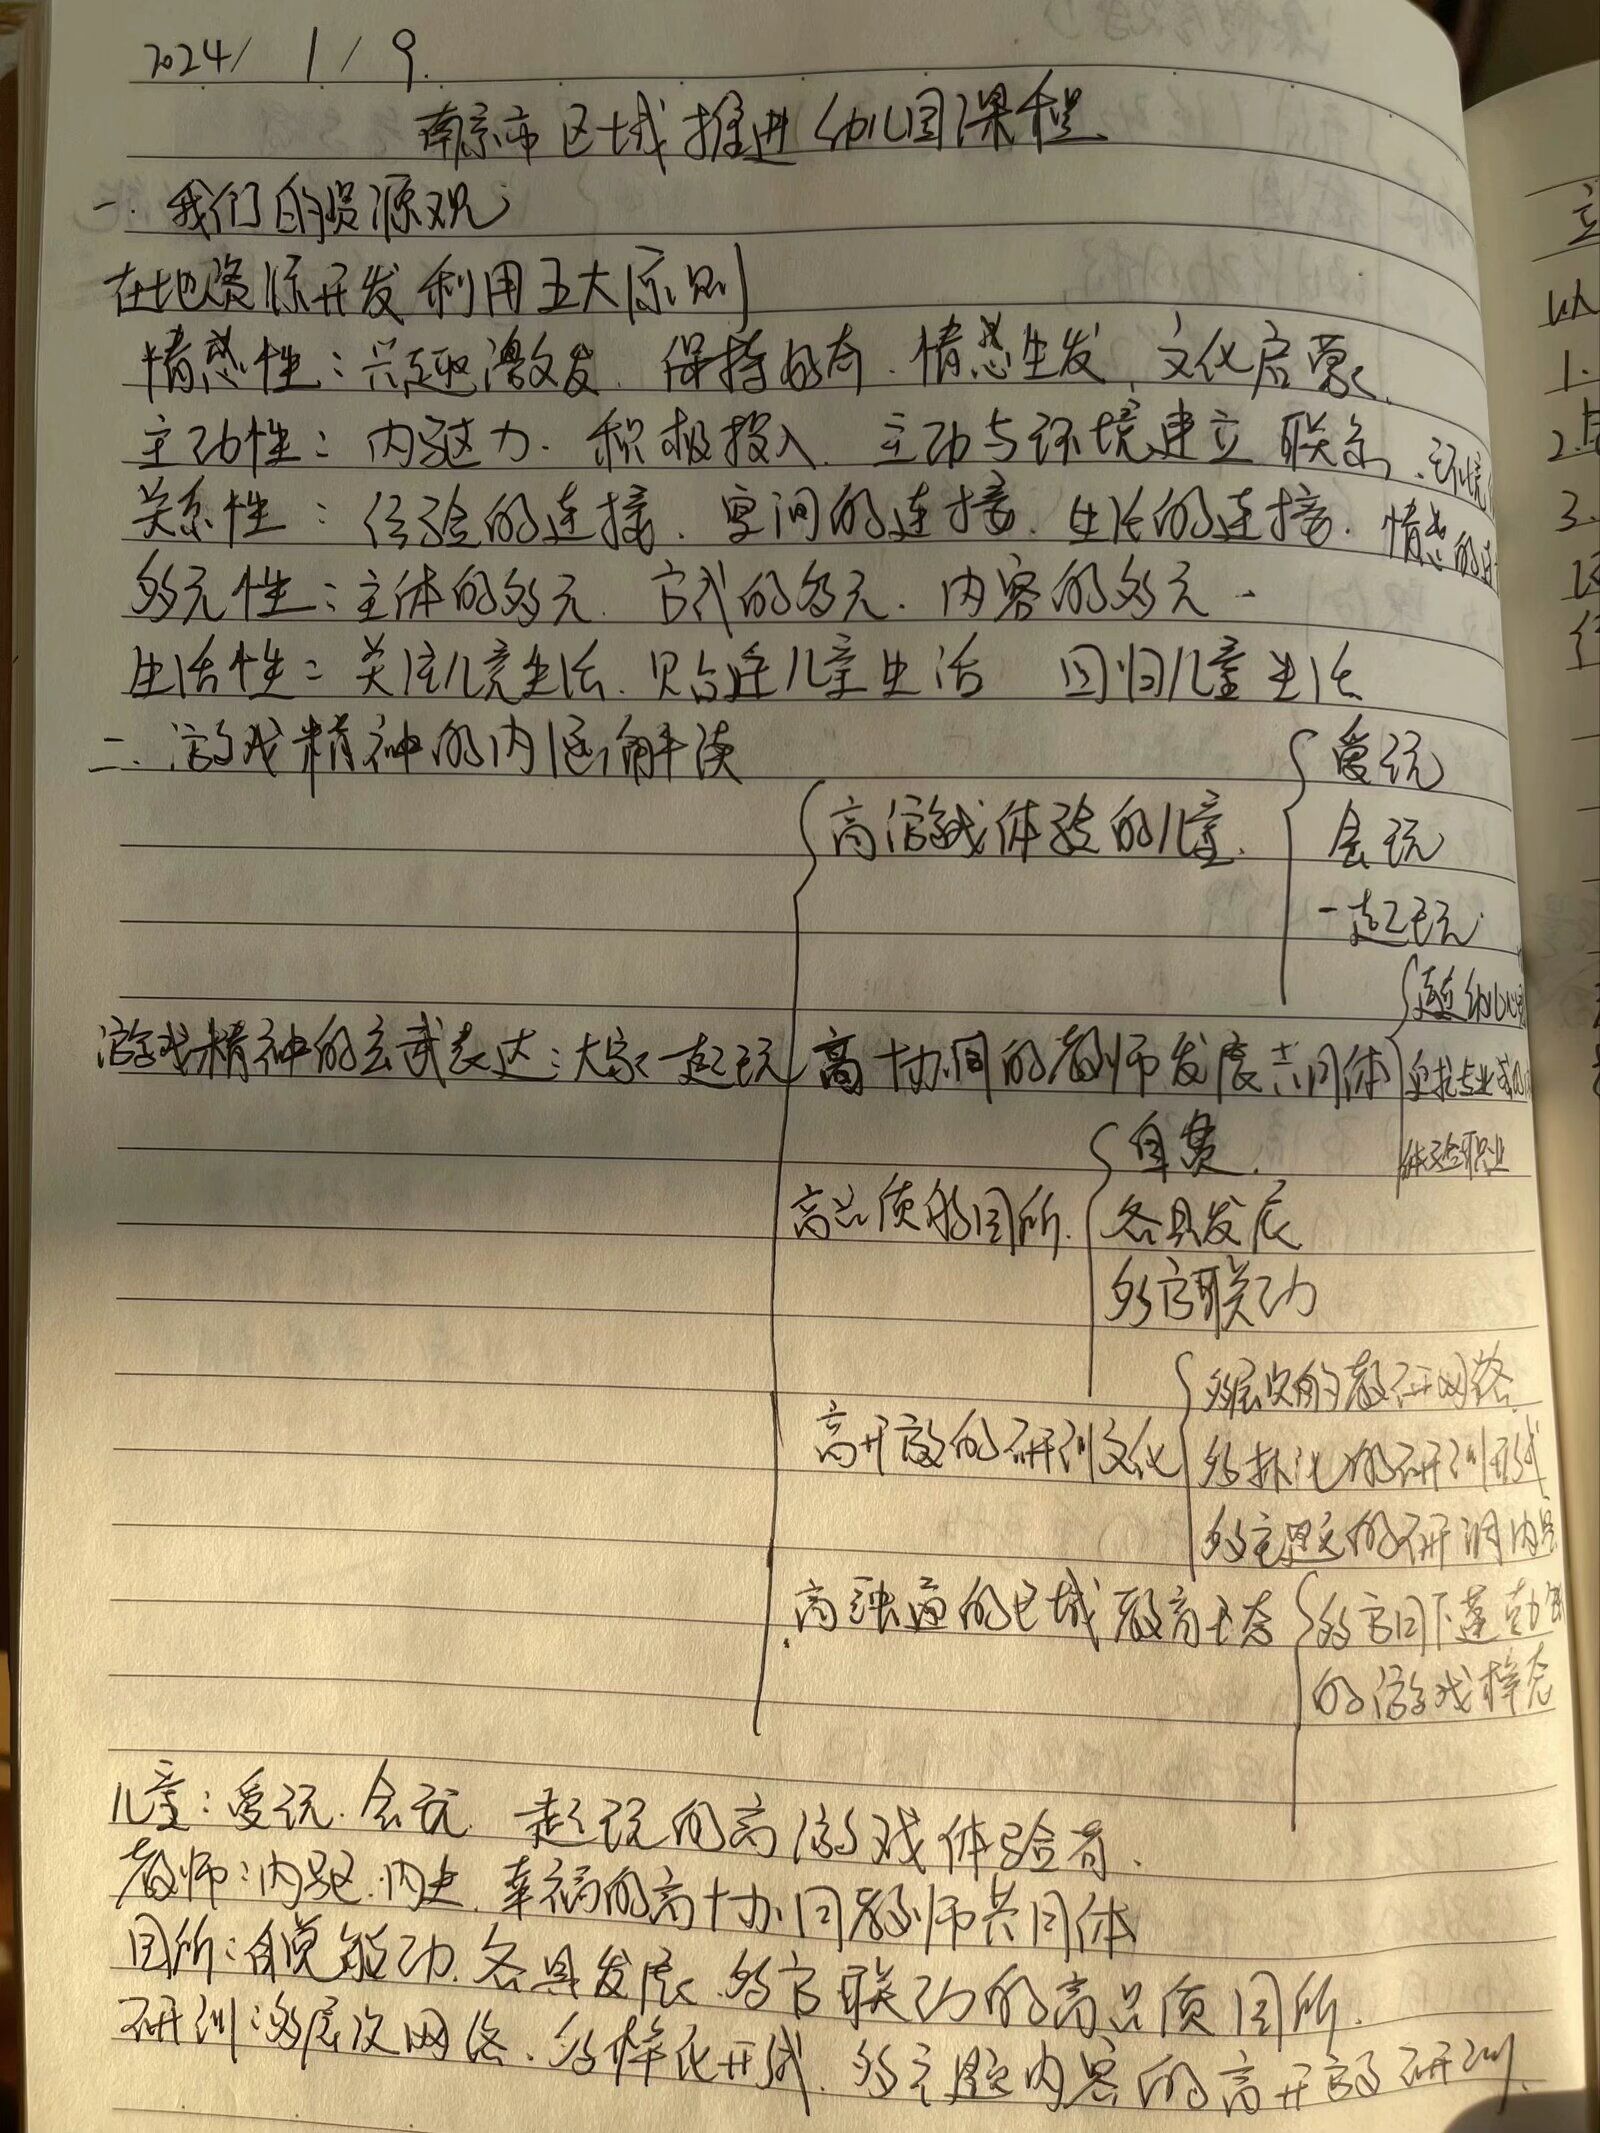 2024/1/9.
南京市区域推进幼儿园课程
一. 我们的资源观:
在地资源开发利用五大原则
情感性: 兴趣激发. 保持好奇. 情感生发. 文化启蒙.
主动性: 内驱力. 积极投入. 主动与环境建立联系.
关系性: 经验的连接. 空间的连接. 生活的连接. 情感的连
多元性: 主体的多元. 方式的多元. 内容的多元.
生活性: 关注儿童生活. 贴近儿童生活 回归儿童生活
二. 游戏精神的内涵解读
爱玩
高游戏体验的儿童.
会玩
一起玩.
幼儿
游戏精神的玄武表达: 大家一起玩 高协同的教师发展共同体
体验职业
自
高品质的园所.
各具发展
多方联动
多层次的教研网络
高开放的研训文化
多样化的研训形式
多主题的研训内容
高融通的区域教育生态
多方
的游戏样态
儿童: 爱玩. 会玩 起玩的高游戏体验者.
教师: 内驱. 内生. 幸福的高协同教师共同体
园所: 能动. 各具发展. 多方联动的高品质园所.
研训: 多层次网络. 多样化形式. 多主题内容的高开放研训.